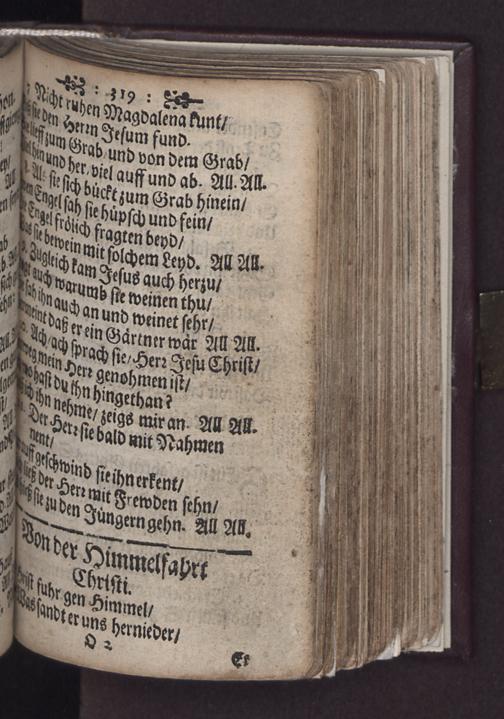 : 319 :
Nicht ruhen Magdalena kunt/
sie den Herrn Jesum fund.
lieff zum Grab und von dem Grab/
hen und her, viel auff und ab. All. All.
Als sie sich bückt zum Grab hinein/
Engel sah sie hüpsch und fein/
Engel frölich fragten beyd/
sie bewein mit solchem Leyd. All All.
Zugleich kam Jesus auch herzu/
auch warumb sie weinen thu/
sah ihn auch an und weinet sehr/
meint daß er ein Gärtner wär All All.
Ach/ach sprach sie/Herr Jesu Christ/
mein Herr genohmen ist/
hast du ihn hingethan?
ich ihn nehme/ zeigs mir an. All All.
Der Herr sie bald mit Nahmen
nent/
geschwind sie ihn erkent/
ließ der Herr mit Frewden sehn/
sie zu den Jüngern gehn. All All.
Von der Himmelfahrt
Christi.
fuhr gen Himmel/
Was sandt er uns hernieder/
O 2
Er